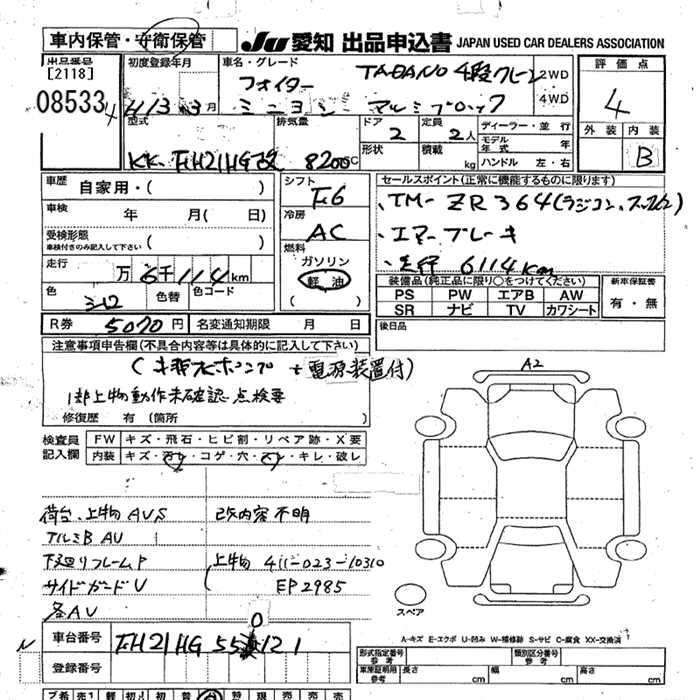 車内保管・守衛保管
JU 愛知 出品申込書 JAPAN USED CAR DEALERS ASSOCIATION
出品番号
[2118]
08533
初度登録年月
H13 3月
車名・グレード
フォイター TADANO 4段クレーン
ミニヨシ アルミブロック
2WD
4WD
評価点
4
外装 内装
B
型式
KK-FH21HG改
排気量
8200CC
ドア
2
定員
2人
形状
積載
kg
ディーラー・並行
モデル年式 年
ハンドル 左・右
車歴 自家用・( )
車検 年 月( 日)
受検形態
車検付きのみ記入して下さい
( )
走行 万6千114km
色
色替
色コード
シフト
F6
冷房
AC
燃料
ガソリン
軽油
( )
セールスポイント(正常に機能するものに限ります)
・TM-ZR364(ラジコン、フックイン)
・エアーブレーキ
・走行 6114km
装備品(純正品に限り○をつけてください)
PS PW エアB AW
SR ナビ TV カワシート
新車保証書
有・無
R券 5070円
名変通知期限 月 日
後日品
注意事項申告欄(不具合内容等は具体的に記入して下さい)
+電源装置付)
1部上物動作未確認 点検要
修復歴 有 (箇所 )
検査員記入欄
FW キズ・飛石・ヒビ割・リペア跡・X要
内装 キズ・汚レ・コゲ・穴・スレ・キレ・破レ
荷台、上物AUS 改内容不明
アルミB AU
下廻りフレームP 上物 411-023-10310
サイドガードU EP2985
各AU
A2
スペア
A-キズ E-エクボ U-凹み W-補修跡 S-サビ C-腐食 XX-交換済
車台番号
FH21HG 550121
登録番号
形式指定番号
参考
類別区分番号
参考
車庫証明用
参考
長さ cm
幅 cm
高さ cm